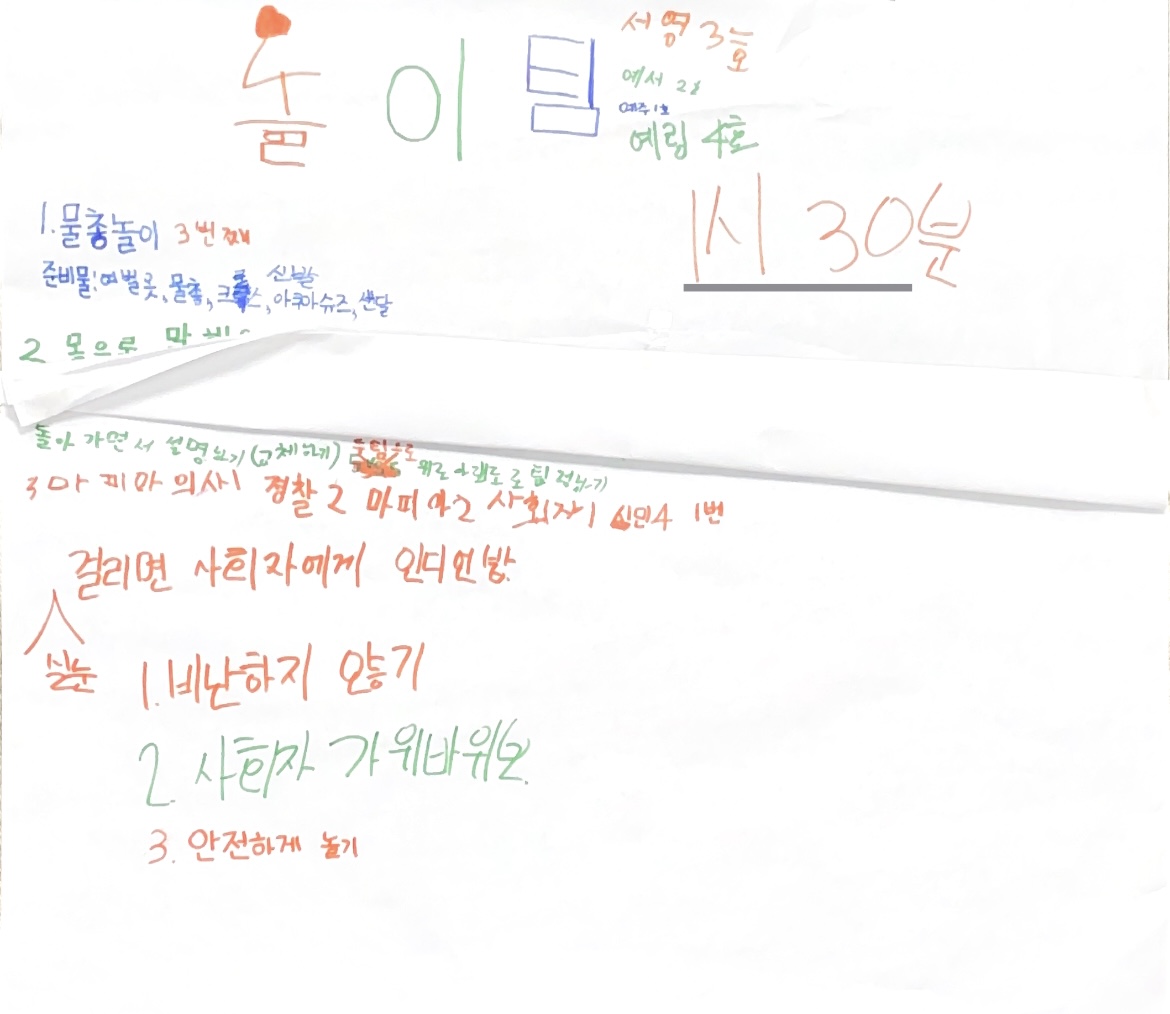 놀이팀
서영 3호
예서 2호
예주 1호
예림 4호
1시 30분
1. 물총놀이 3번째
준비물: 여벌옷, 물총, 크록스, 신발, 아쿠아슈즈, 샌달
2 몸으로
돌아 가면서 설명하기 (교체하기) 두팀으로 위로 아래로 팀 정하기
3 마피아 의사1 경찰2 마피아2 사회자1 시민4 1번
걸리면 사회자에게 인디언밥
1. 비난하지 않기
2. 사회자 가위바위보
3. 안전하게 놀기